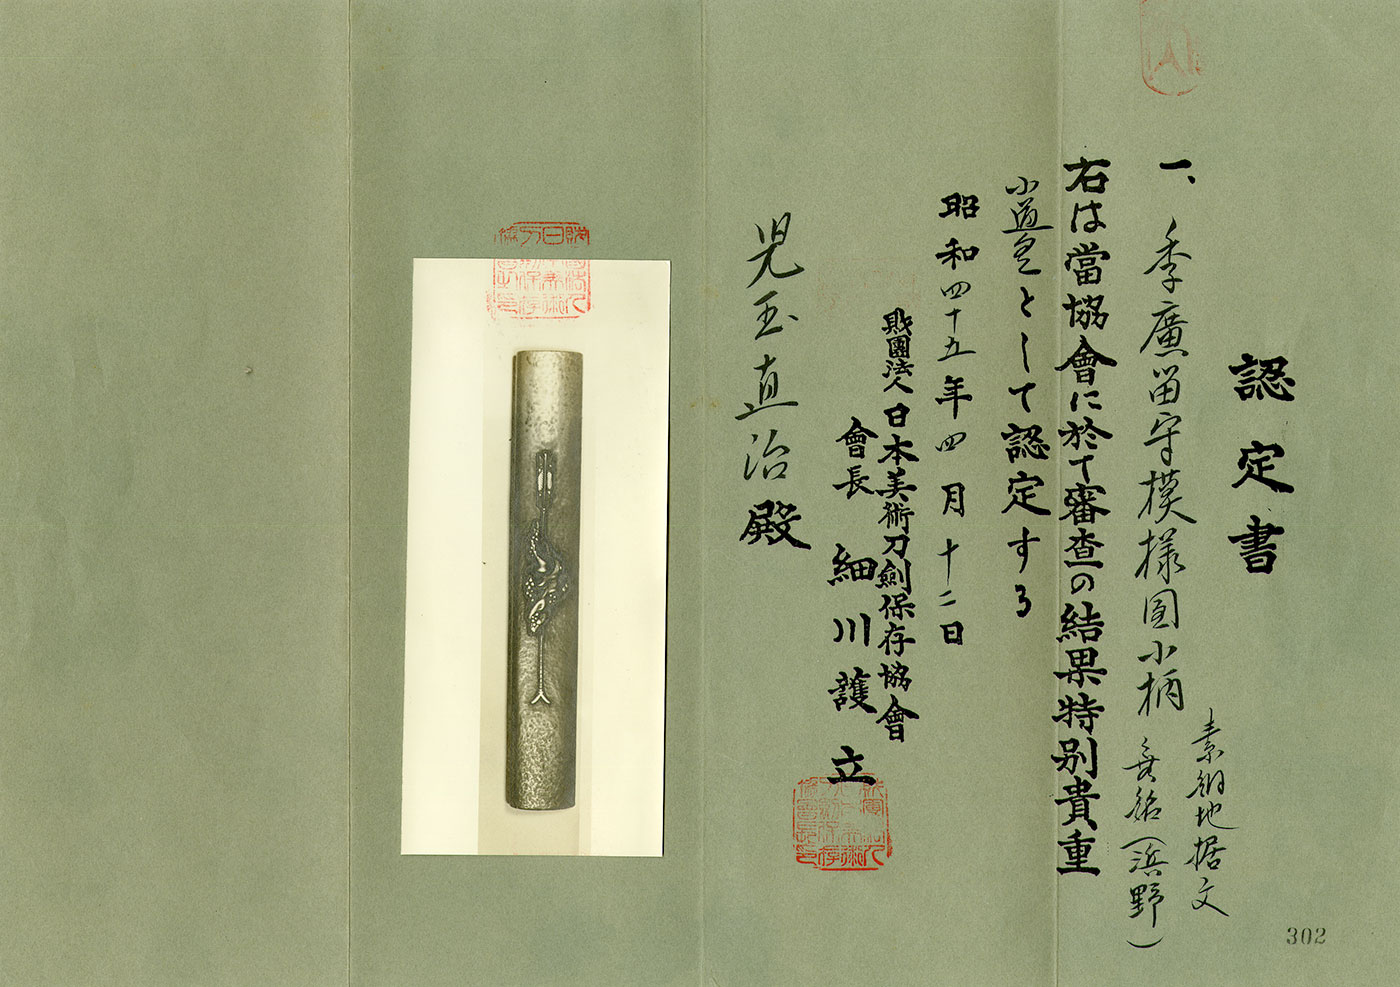 認定書
一、季廣留守模様図小柄
素銅地据文
無銘(浜野)
右は當協會に於て審査の結果特別貴重
小道具として認定する
昭和四十五年四月十二日
財團法人日本美術刀劍保存協會
會長 細川護立
児玉直治殿
302